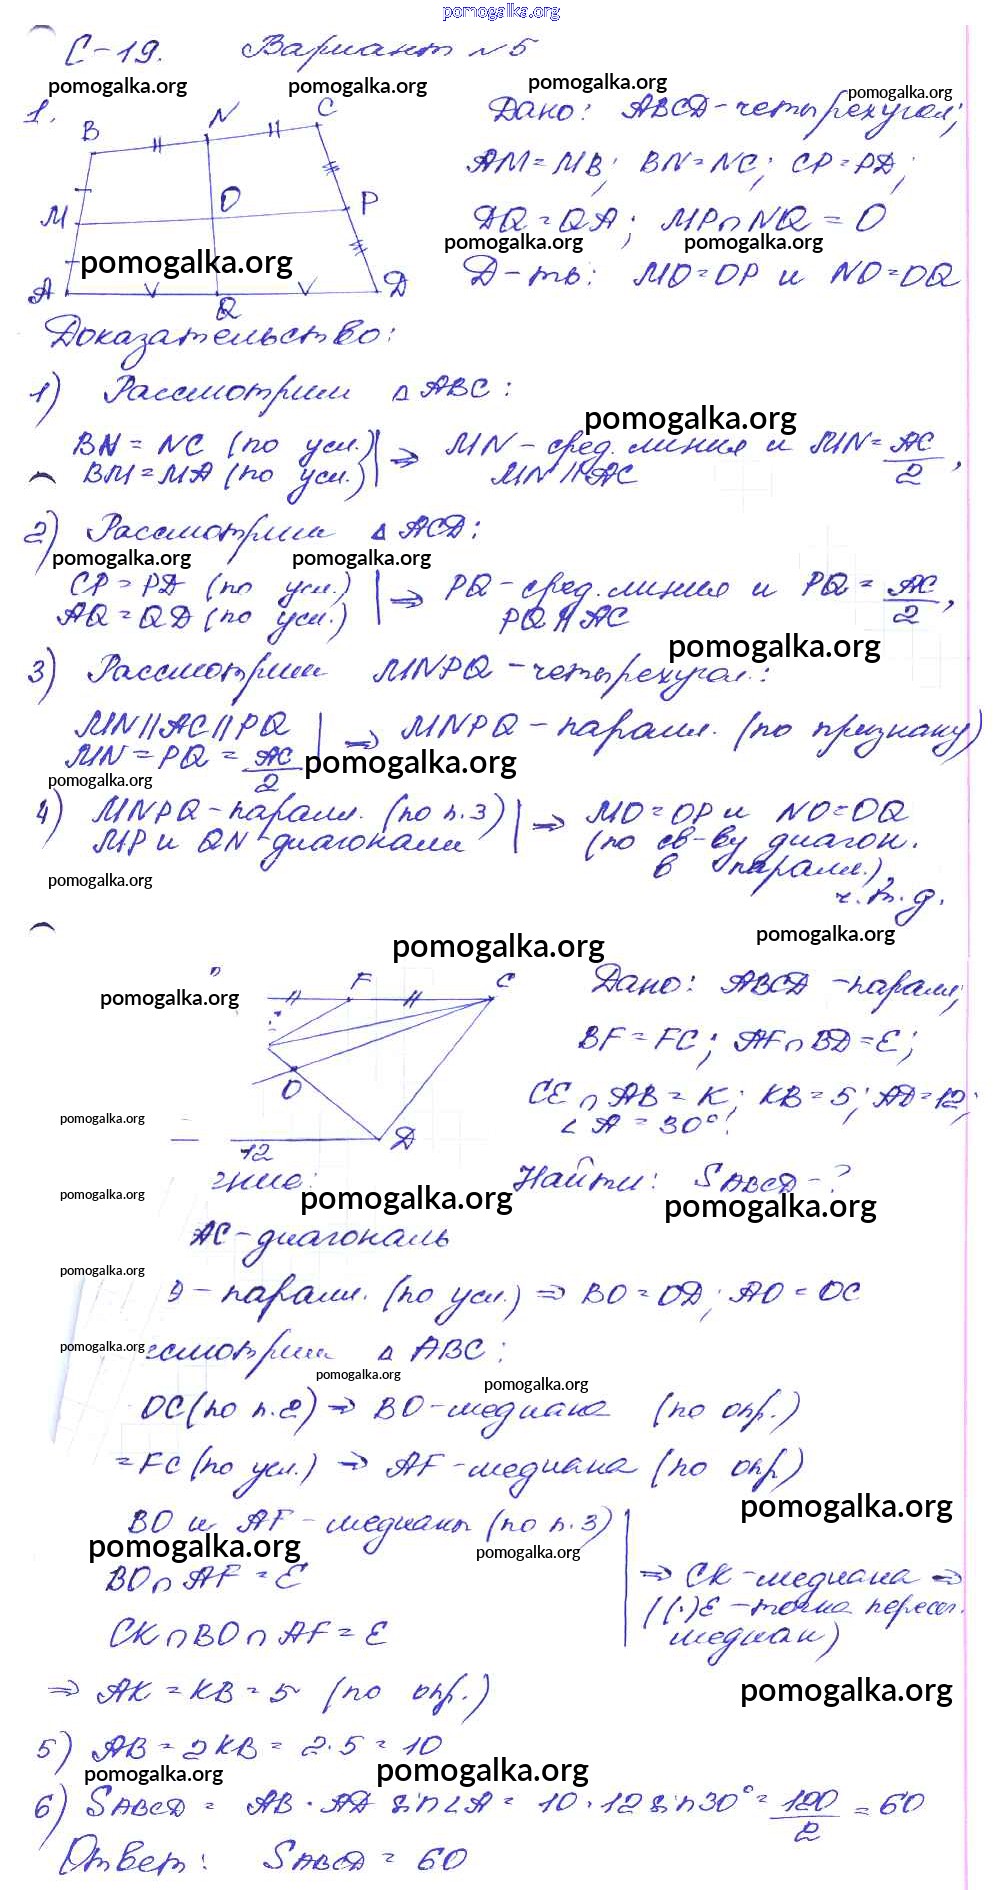 pomogalka.org
С-19. Вариант №5
pomogalka.org pomogalka.org pomogalka.org pomogalka.org
1.
B N C
M O P
A Q D
pomogalka.org
Дано: ABCD-четырехугол;
AM=MB; BN=NC; CP=PD;
DQ=QA; MP∩NQ=O
pomogalka.org pomogalka.org
Д-ть: MO=OP и NO=OQ
Доказательство:
1) Рассмотрим △ABC:
pomogalka.org
BN=NC (по усл.) ⇒ MN-сред.линия и MN=AC/2,
BM=MA (по усл.) MN∥AC
2) Рассмотрим △ACD:
pomogalka.org pomogalka.org
CP=PD (по усл.) ⇒ PQ-сред.линия и PQ=AC/2,
AQ=QD (по усл.) PQ∥AC
pomogalka.org
3) Рассмотрим MNPQ-четырехугол.:
MN∥AC∥PQ ⇒ MNPQ-паралл. (по признаку)
MN=PQ=AC/2
pomogalka.org
pomogalka.org
4) MNPQ-паралл. (по п.3) ⇒ MO=OP и NO=OQ
MP и QN-диагонали (по св-ву диагон.
в паралл.),
pomogalka.org
ч.т.д.
pomogalka.org
pomogalka.org
F C
O
D
12
pomogalka.org
Дано: ABCD-паралл;
BF=FC; AF∩BD=E;
CE∩AB=K; KB=5; AD=12;
∠A=30°.
pomogalka.org
ние: Найти: SABCD-?
pomogalka.org
pomogalka.org pomogalka.org
AC-диагональ
pomogalka.org
D-паралл. (по усл.) ⇒ BO=OD; AO=OC
pomogalka.org
смотрим △ABC:
pomogalka.org
pomogalka.org
OC (по п.2) ⇒ BO-медиана (по опр.)
=FC (по усл.) ⇒ AF-медиана (по опр)
pomogalka.org
BO и AF-медианы (по п.3)
pomogalka.org pomogalka.org
BO∩AF=E ⇒ CK-медиана ⇒
((·)E-точка пересеч.
CK∩BO∩AF=E медиан)
⇒ AK=KB=5 (по опр.)
pomogalka.org
5) AB=2KB=2·5=10
pomogalka.org pomogalka.org
6) SABCD=AB·AD sin∠A=10·12sin30°=120/2=60
Ответ: SABCD=60